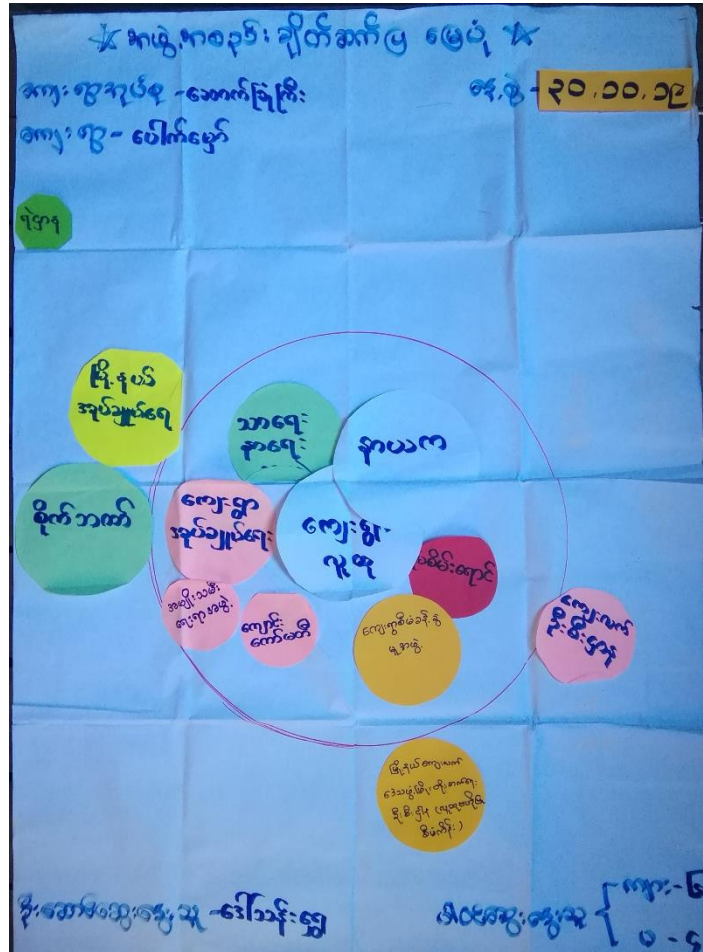 ☆ အဖွဲ့အစည်း ချိတ်ဆက်ပြ မြေပုံ ☆
ကျေးရွာအုပ်စု - အောက်ခြုံကြီး
နေ့စွဲ - ၃၀.၁၀.၁၉
ကျေးရွာ - ပေါက်မှော်
ရဲဌာန
မြို့နယ်
အုပ်ချုပ်ရေး
သာရေး
နာရေး
နာယက
စိုက်ဘဏ်
ကျေးရွာ
အုပ်ချုပ်ရေး
ကျေးရွာ
လူထု
မြစိမ်းရောင်
အမျိုးသမီး
ရေးရာအဖွဲ့
ကျောင်း
ကော်မတီ
ကျေးရွာစီမံခန့်ခွဲ
မှုအဖွဲ့
ကျေးလက်
ဦးစီးဌာန
မြို့နယ်ကျေးလက်
ဒေသဖွံ့ဖြိုးတိုးတက်ရေး
ဦးစီးဌာန (လူထုဗဟိုပြု
စီမံကိန်း)
ဦးဆောင်ဆွေးနွေးသူ - ဒေါ်သန်းရွှေ
ပါဝင်ဆွေးနွေးသူ
ကျား -
မ -